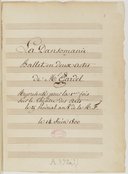 La Dansomanie
Ballet en deux actes
De Mr. Gardel
Représenté pour la 1ere fois
sur le Théâtre des Arts
le 14 Juin 1800